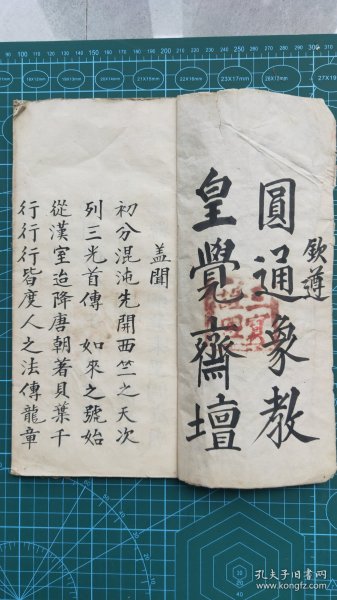 欽遵
圓通象教
皇覺齋壇
蓋聞
初分混沌先開西竺之天次
列三光首傳 如來之號始
從漢室迨降唐朝著貝葉千
行行行皆度人之法傳龍章
孔夫子旧书网